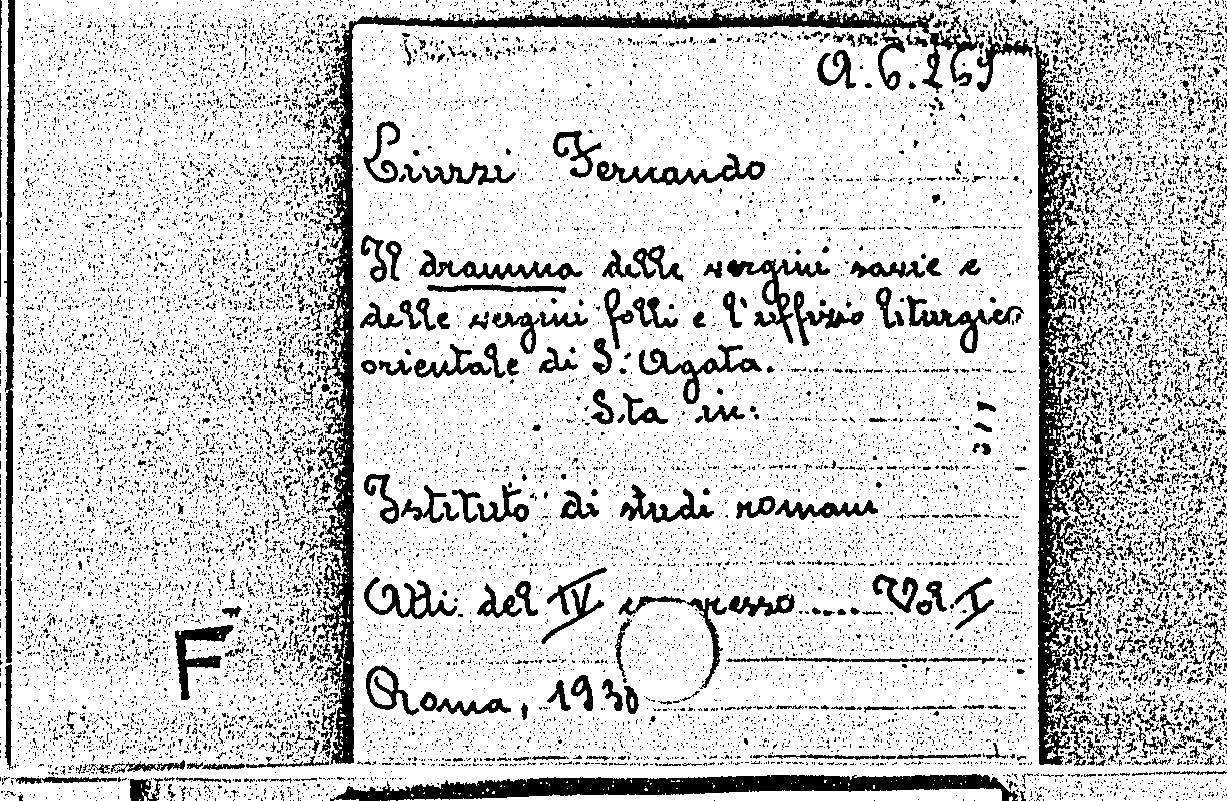 A.6.269
Liuzzi Fernando
Il dramma delle vergini savie e
delle vergini folli e l'uffizio liturgico
orientale di S. Agata.
Sta in:
Istituto di studi romani
Atti del IV congresso .... Vol. I
Roma, 1938
F